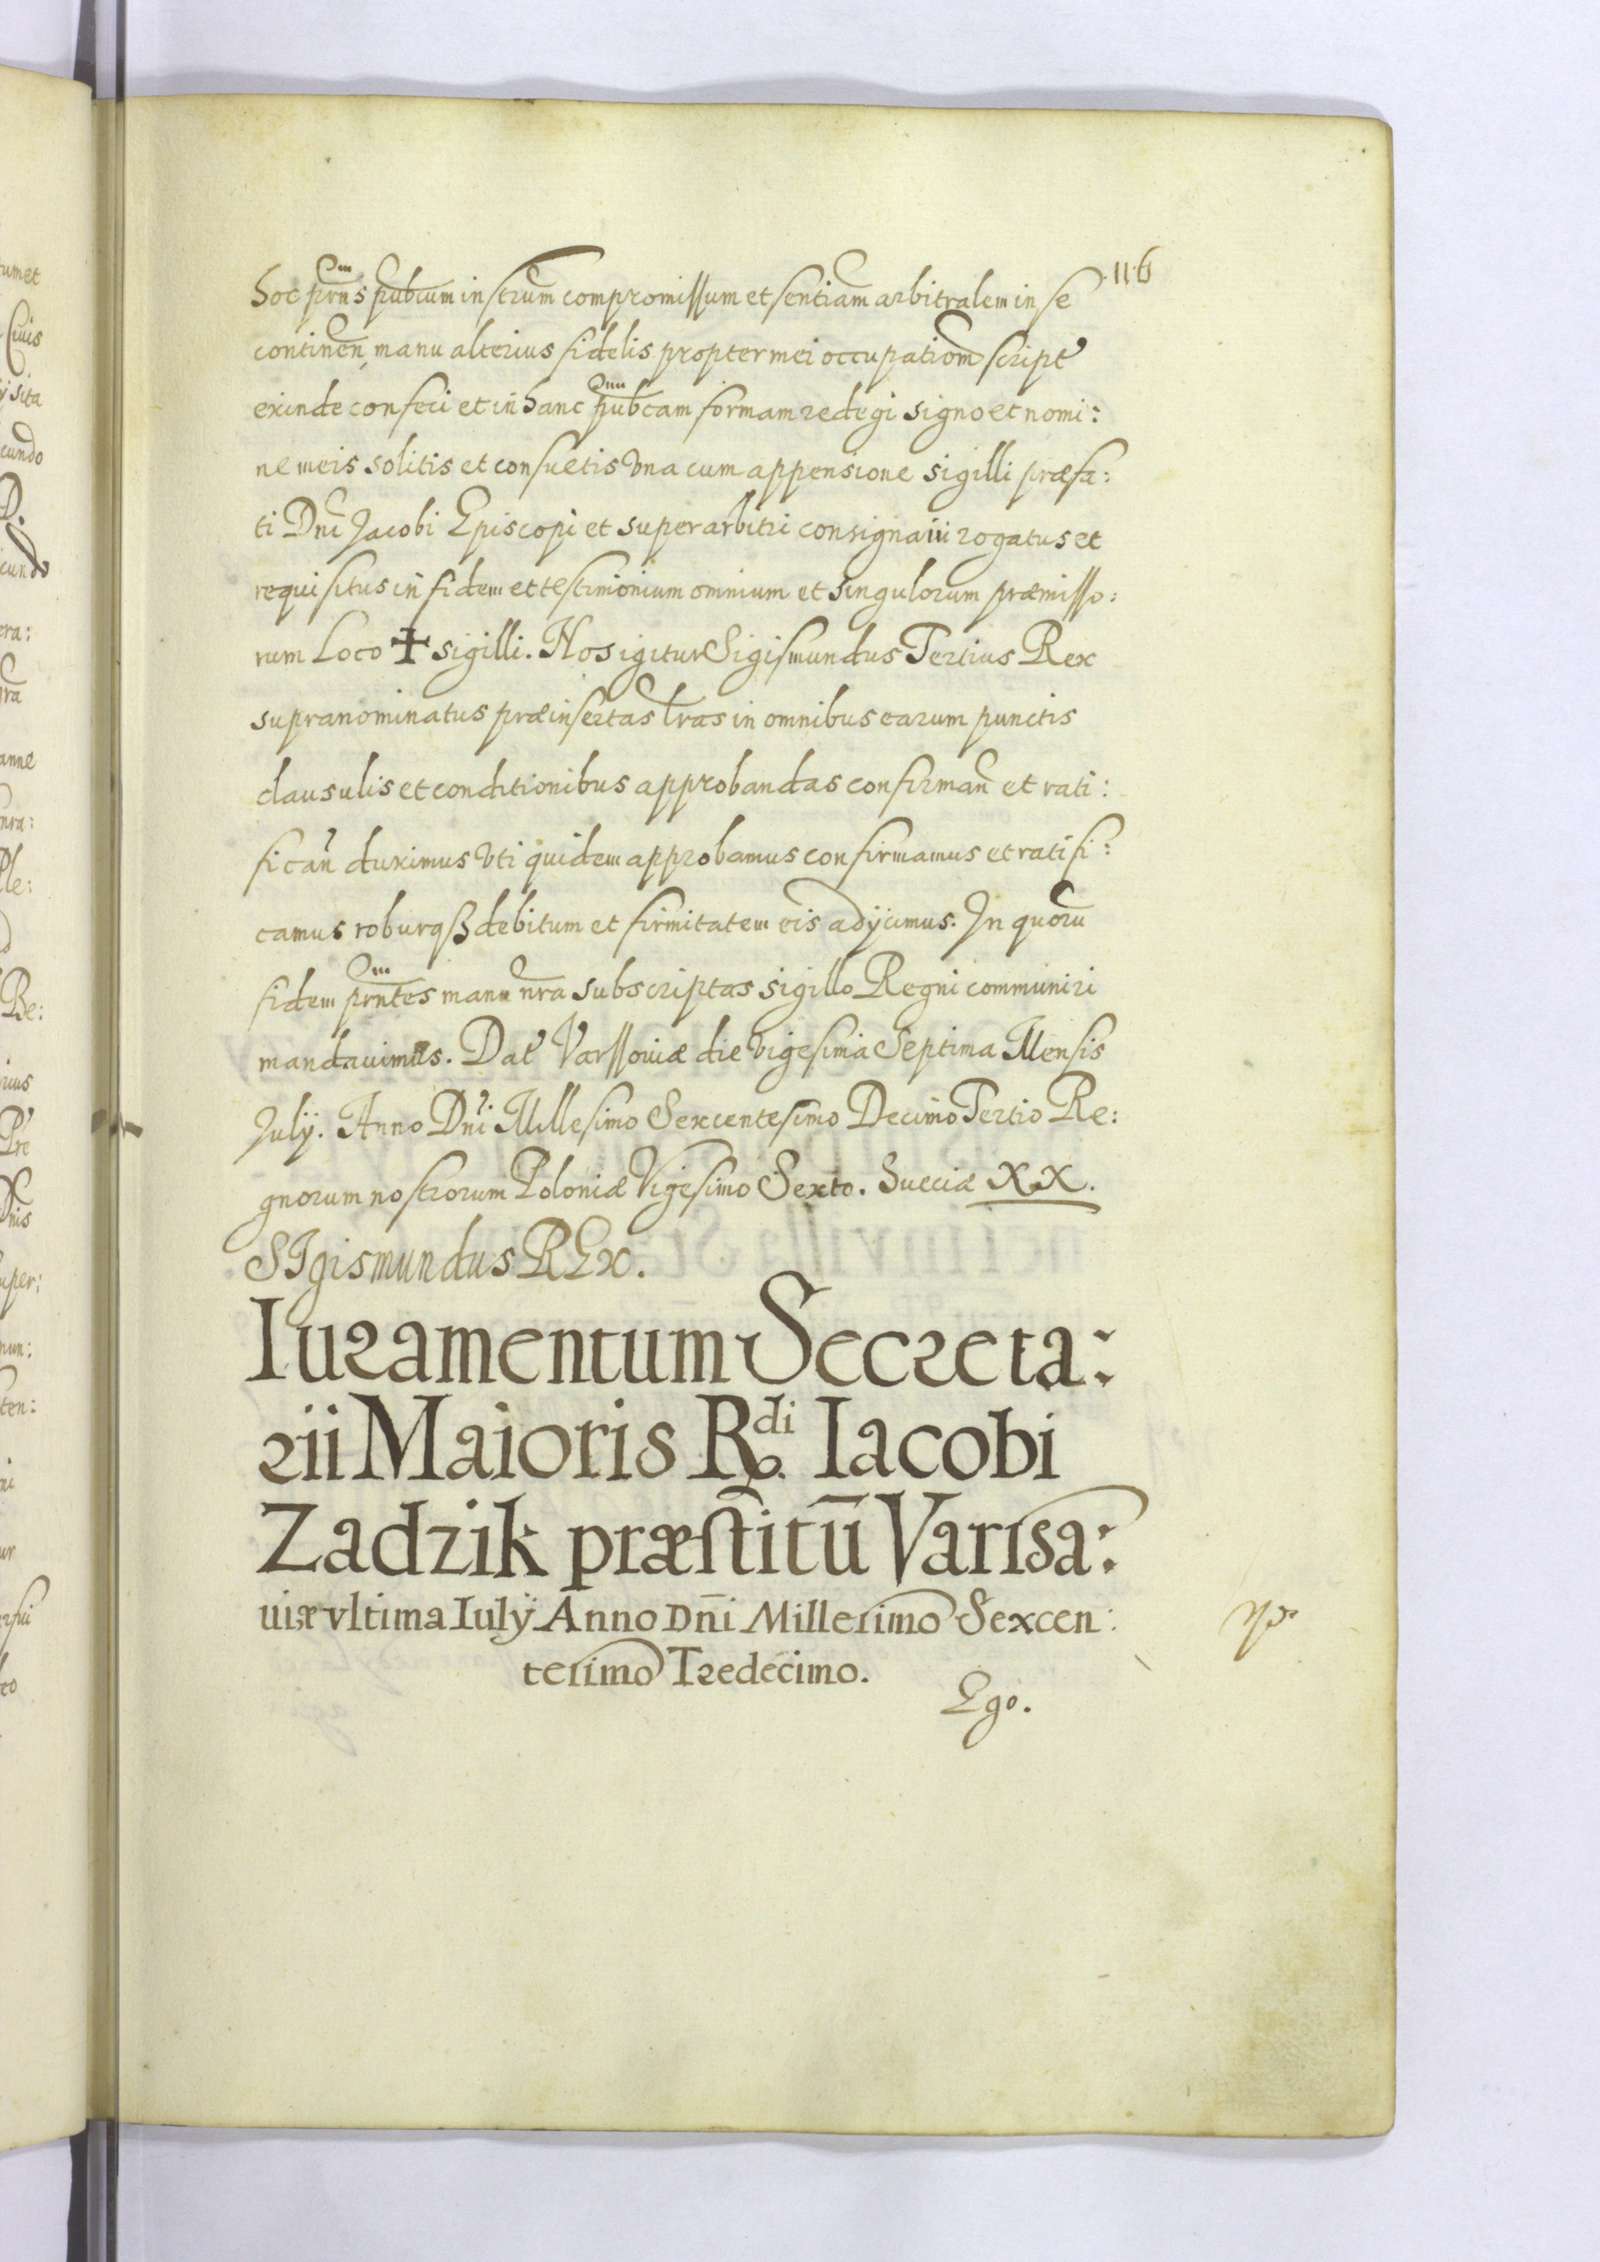 116
hoc prns pubcum instrum compromissum et sentiam arbitralem in se
continen manu alterius fidelis propter mei occupatiom script
exinde confeci et in hanc pubcam formam redegi signo et nomi:
ne meis solitis et consuetis vna cum appensione sigilli præfa:
ti Dni Jacobi Episcopi et superarbitri consignaui rogatus et
requisitus in fidem et testimonium omnium et singulorum præmisso:
rum Loco ✝ sigilli. Nos igitur Sigismundus Tertius Rex
supranominatus præinsertas lras in omnibus earum punctis
clausulis et conditionibus approbandas confirman et rati:
fican duximus vti quidem approbamus confirmamus et ratifi:
camus roburqß debitum et firmitatem eis adijcimus. In quorū
fidem prntes manu nra subscriptas sigillo Regni communiri
mandauimus. Dat Varssouiæ die vigesima Septima Mensis
July. Anno Dni Millesimo Sexcentesimo Decimo Tertio Re:
gnorum nostrorum Poloniæ Vigesimo Sexto. Sueciæ XX.
SIgismundus REx.
Iuramentum Secreta:
rii Maioris R.di Iacobi
Zadzik præstitū Varssa:
uiæ vltima Iulÿ Anno Dn̄i Millesimo Sexcen:
tesimo Tredecimo.
Ego.